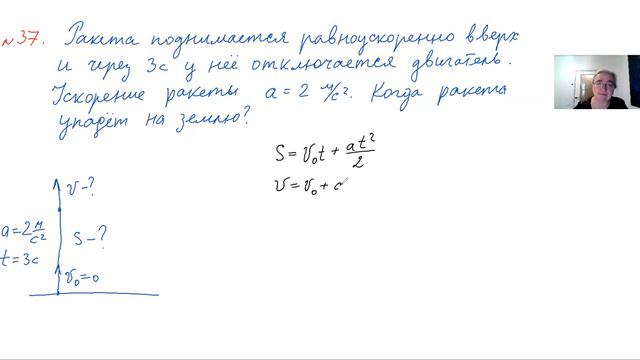 №37. Ракета поднимается равноускоренно вверх
и через 3с у неё отключается двигатель.
Ускорение ракеты a = 2 м/с². Когда ракета
упадёт на землю?
S = v₀t + at²/2
v = v₀ + a
v - ?
a = 2 м/с²
S - ?
t = 3с
v₀ = 0